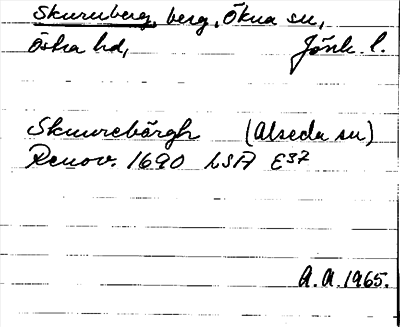 Skuruberg, berg, Ökna sn,
Östra hd, Jönk. l.
Skuurebärgh (Alseda sn)
Renov. 1690 LSA E37
A.A. 1965.